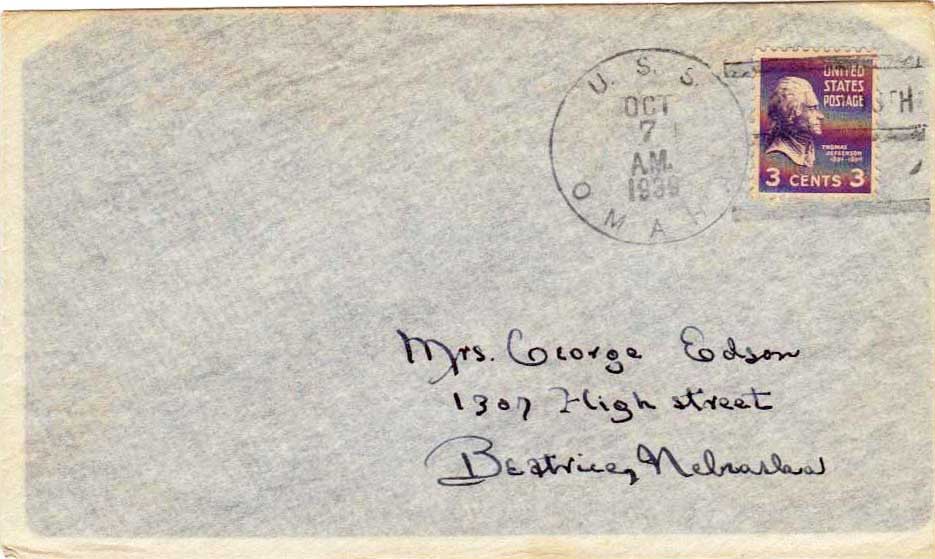 U. S. S.
OCT
7
A.M.
1939
OMAHA
UNITED
STATES
POSTAGE
THOMAS
JEFFERSON
3 CENTS 3
Mrs. George Edson
1307 High street
Beatrice, Nebraska